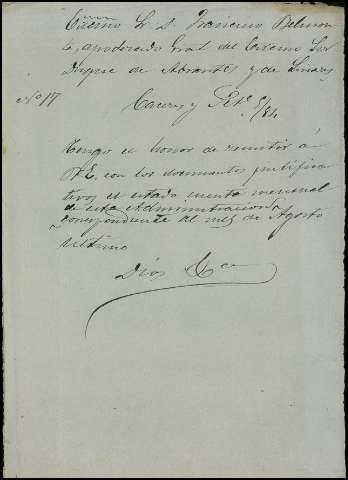 Excmo Sr D Francisco Belmon
te, apoderado Gral del Excmo Sor
Duque de Abrantes y de Linares
Nº 17
Caceres y Sete 5/84
Tengo el honor de remitir á
V.E. con los documentos justifica
tivos el estado cuenta mensual
de esta Administracion
correspondiente al mes de Agosto
ultimo
Dios &ca